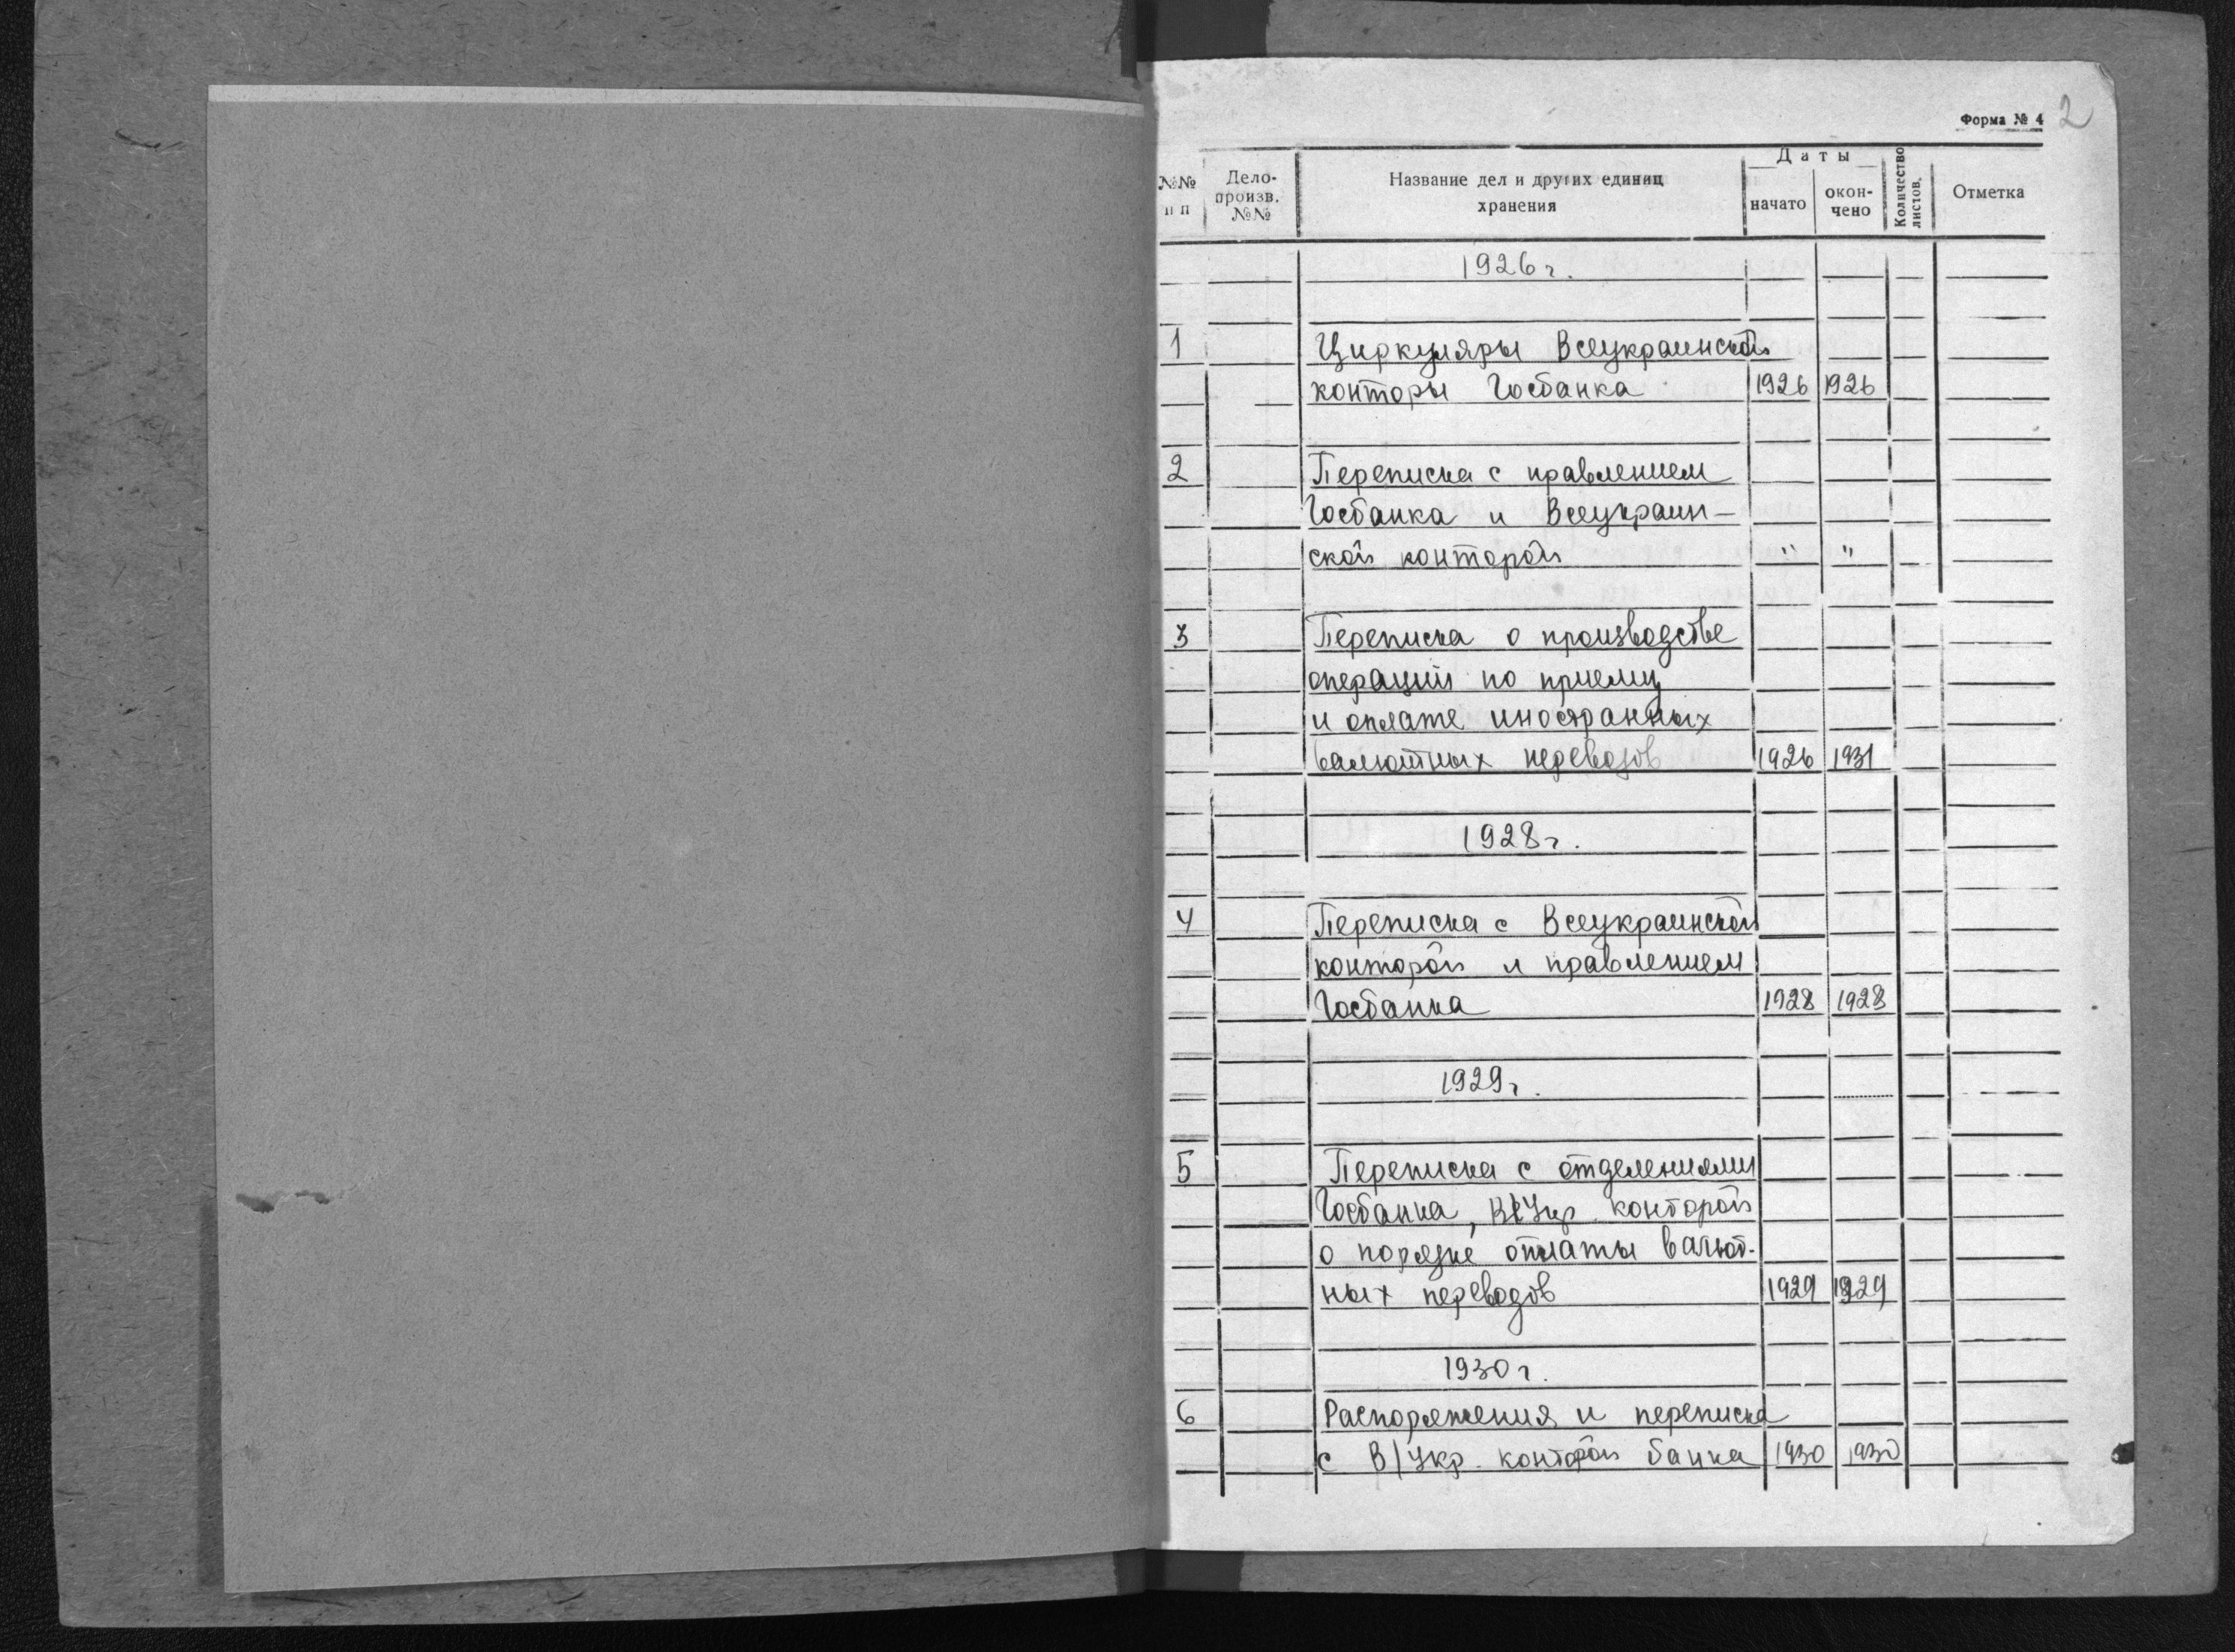 Форма № 4
2
№№ п п
Дело-произв. №№
Название дел и других единиц хранения
Даты
начато
окончено
Количество листов.
Отметка
1926 г.
1 Циркуляры Всеукраинской
конторы Госбанка 1926 1926
2 Переписка с правлением
Госбанка и Всеукраин-
ской конторой " "
3 Переписка о производстве
операций по приему
и оплате иностранных
валютных переводов 1926 1931
1928 г.
4 Переписка с Всеукраинской
конторой и правлением
Госбанка 1928 1928
1929 г.
5 Переписка с отделениями
Госбанка, ВсУкр. конторой
о порядке оплаты валют-
ных переводов 1929 1929
1930 г.
6 Распоряжения и переписка
с В/Укр. конторой банка 1930 1930